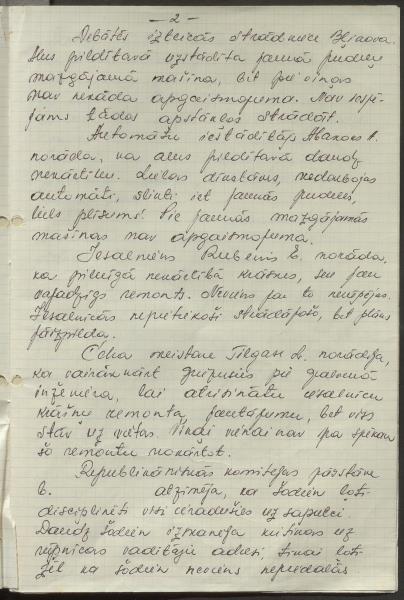 - 2 -
Debatēs izteicās strādniece Blinova.
Alus pildītavā uzstādīta jaunā pudeļu
mazgājamā mašīna, bet pie viņas
nav nekāda apgaismojuma. Nav iespē-
jams tādos apstākļos strādāt.
Automātu iestādītājs
norāda, ka alus pildītavā daudz
nekārtību. nedarbojas
automāti, slikti iet jaunās pudeles,
liels plīsums. Pie jaunās mazgājamās
mašīnas nav apgaismojuma.
Iesalnieks Rubenis E. norāda,
ka pilnīgā nekārtībā krāsnis, sen jau
vajadzīgs remonts. Neviens par to neuztrājas.
Iesalnīcās nepietiekoši strādājošo, bet plāns
jāizpilda.
Ceha meistare L. norādīja,
ka vairākkārt griezusies pie galvenā
inženiera, lai atrisinātu iesalnīcu
krāšņu remonta jautājumu, bet viss
stāv uz vietas. Viņai vienai nav pa spēkam
šo remontu nokārtot.
Republikāniskās komitejas pārstāve
b. atzīmēja, ka šodien ļoti
disciplinēti visi ieradušies uz sapulci.
Daudz šodien izskanēja kritikas uz
rūpnīcas vadītāju adresi, žēl
žēl ka šodien neviens nepiedalās